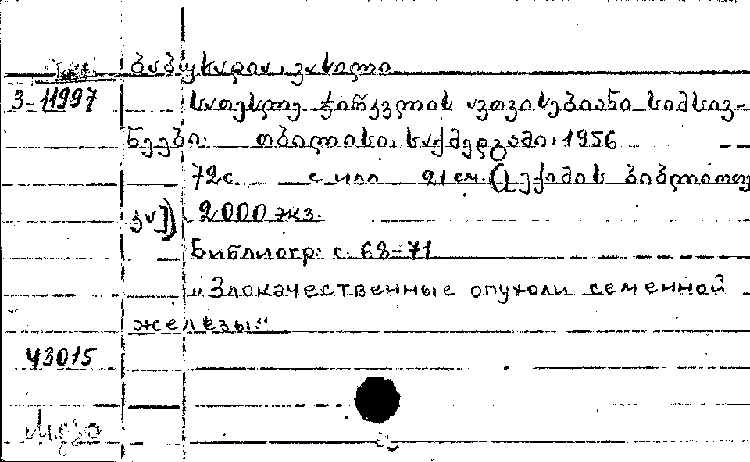 ბაბუხადია, ვასილი
3-11997 სათესლე ჯირკვლის ავთვისებიანი სიმსივ-
ნეები. თბილისი, საქმედგამი, 1956
72 с. с илл 21 см. (ექიმის ბიბლიოთე
კა]) 2000 экз.
Библиогр: с. 68-71
"Злокачественные опухоли семенной
железы."
43015